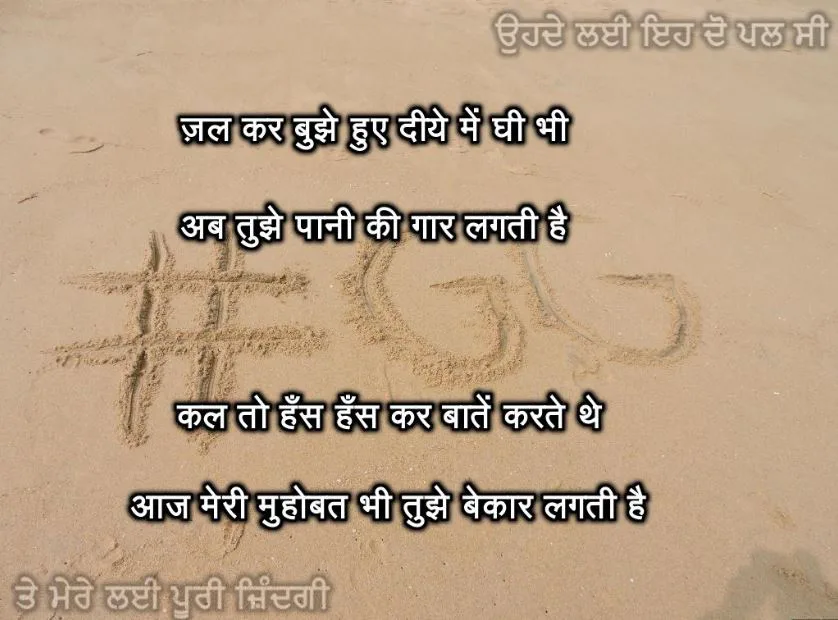 ਉਹਦੇ ਲਈ ਇਹ ਦੋ ਪਲ ਸੀ
ज़ल कर बुझे हुए दीये में घी भी
अब तुझे पानी की गार लगती है
#GG
कल तो हँस हँस कर बातें करते थे
आज मेरी मुहोबत भी तुझे बेकार लगती है
ਤੇ ਮੇਰੇ ਲਈ ਪੂਰੀ ਜ਼ਿੰਦਗੀ